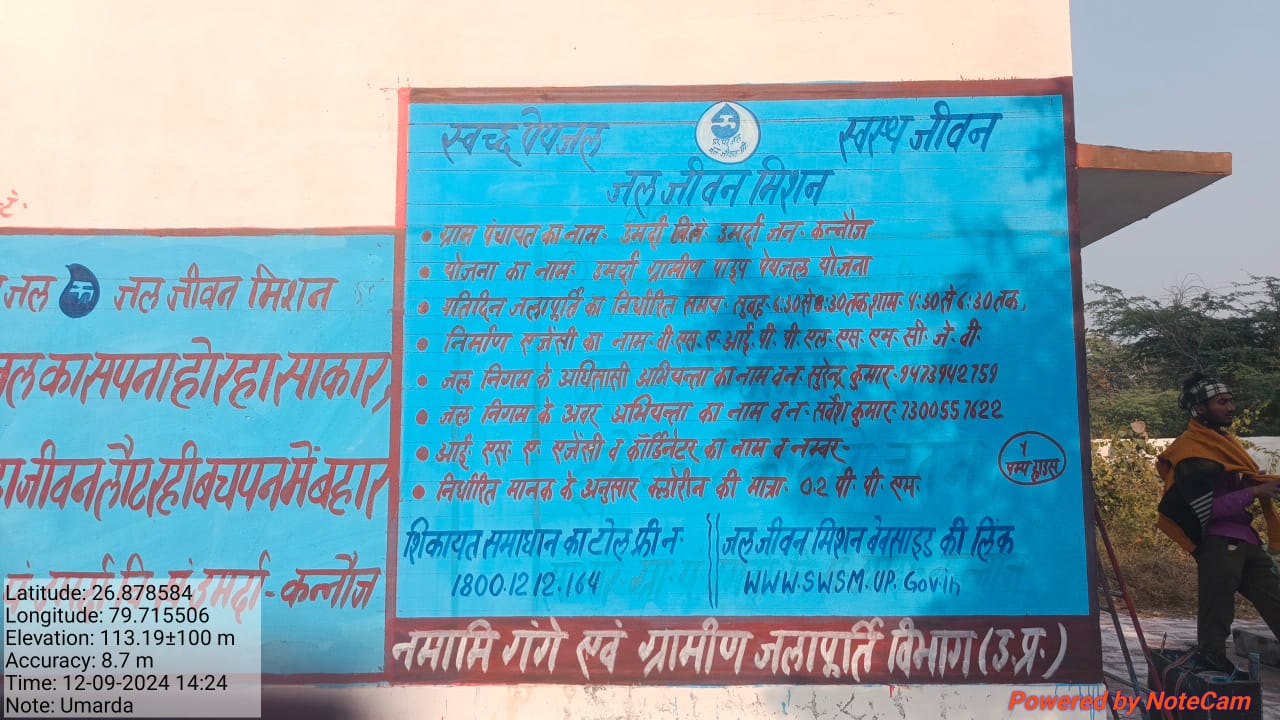 जल जल जीवन मिशन
जल का सपना हो रहा साकार,
जीवन लौट रही बचपन में बहार
उमर्दा - कन्नौज
स्वच्छ पेयजल
स्वस्थ जीवन
जल जीवन मिशन
• ग्राम पंचायत का नाम- उमर्दा वि.खं- उमर्दा जन- कन्नौज
• योजना का नाम- उमर्दा ग्रामीण पाइप पेयजल योजना
• प्रतिदिन जलापूर्ति का निर्धारित समय- सुबह- 6:30 से 8:30 तक शाम- 4:30 से 6:30 तक,
• निर्माण एजेंसी का नाम- वी.एस.ए-आई.पी.पी.एल-एस.एम.सी.जे.वी.
• जल निगम के अधिशासी अभियन्ता का नाम व न- सुरेन्द्र कुमार- 9473942759
• जल निगम के अवर अभियन्ता का नाम व न- सर्वेश कुमार- 7300557622
• आई. एस. ए. एजेंसी व कॉर्डिनेटर का नाम व नम्बर-
• निर्धारित मानक के अनुसार क्लोरीन की मात्रा- 0.2 पी. पी. एम.
पम्प हाउस
शिकायत समाधान का टोल फ्री न- जल जीवन मिशन बेबसाइड की लिंक
1800.12.12.164 WWW.SWSM.UP.Gov.in
नमामि गंगे एवं ग्रामीण जलापूर्ति विभाग (उ.प्र.)
Latitude: 26.878584
Longitude: 79.715506
Elevation: 113.19±100 m
Accuracy: 8.7 m
Time: 12-09-2024 14:24
Note: Umarda
Powered by NoteCam